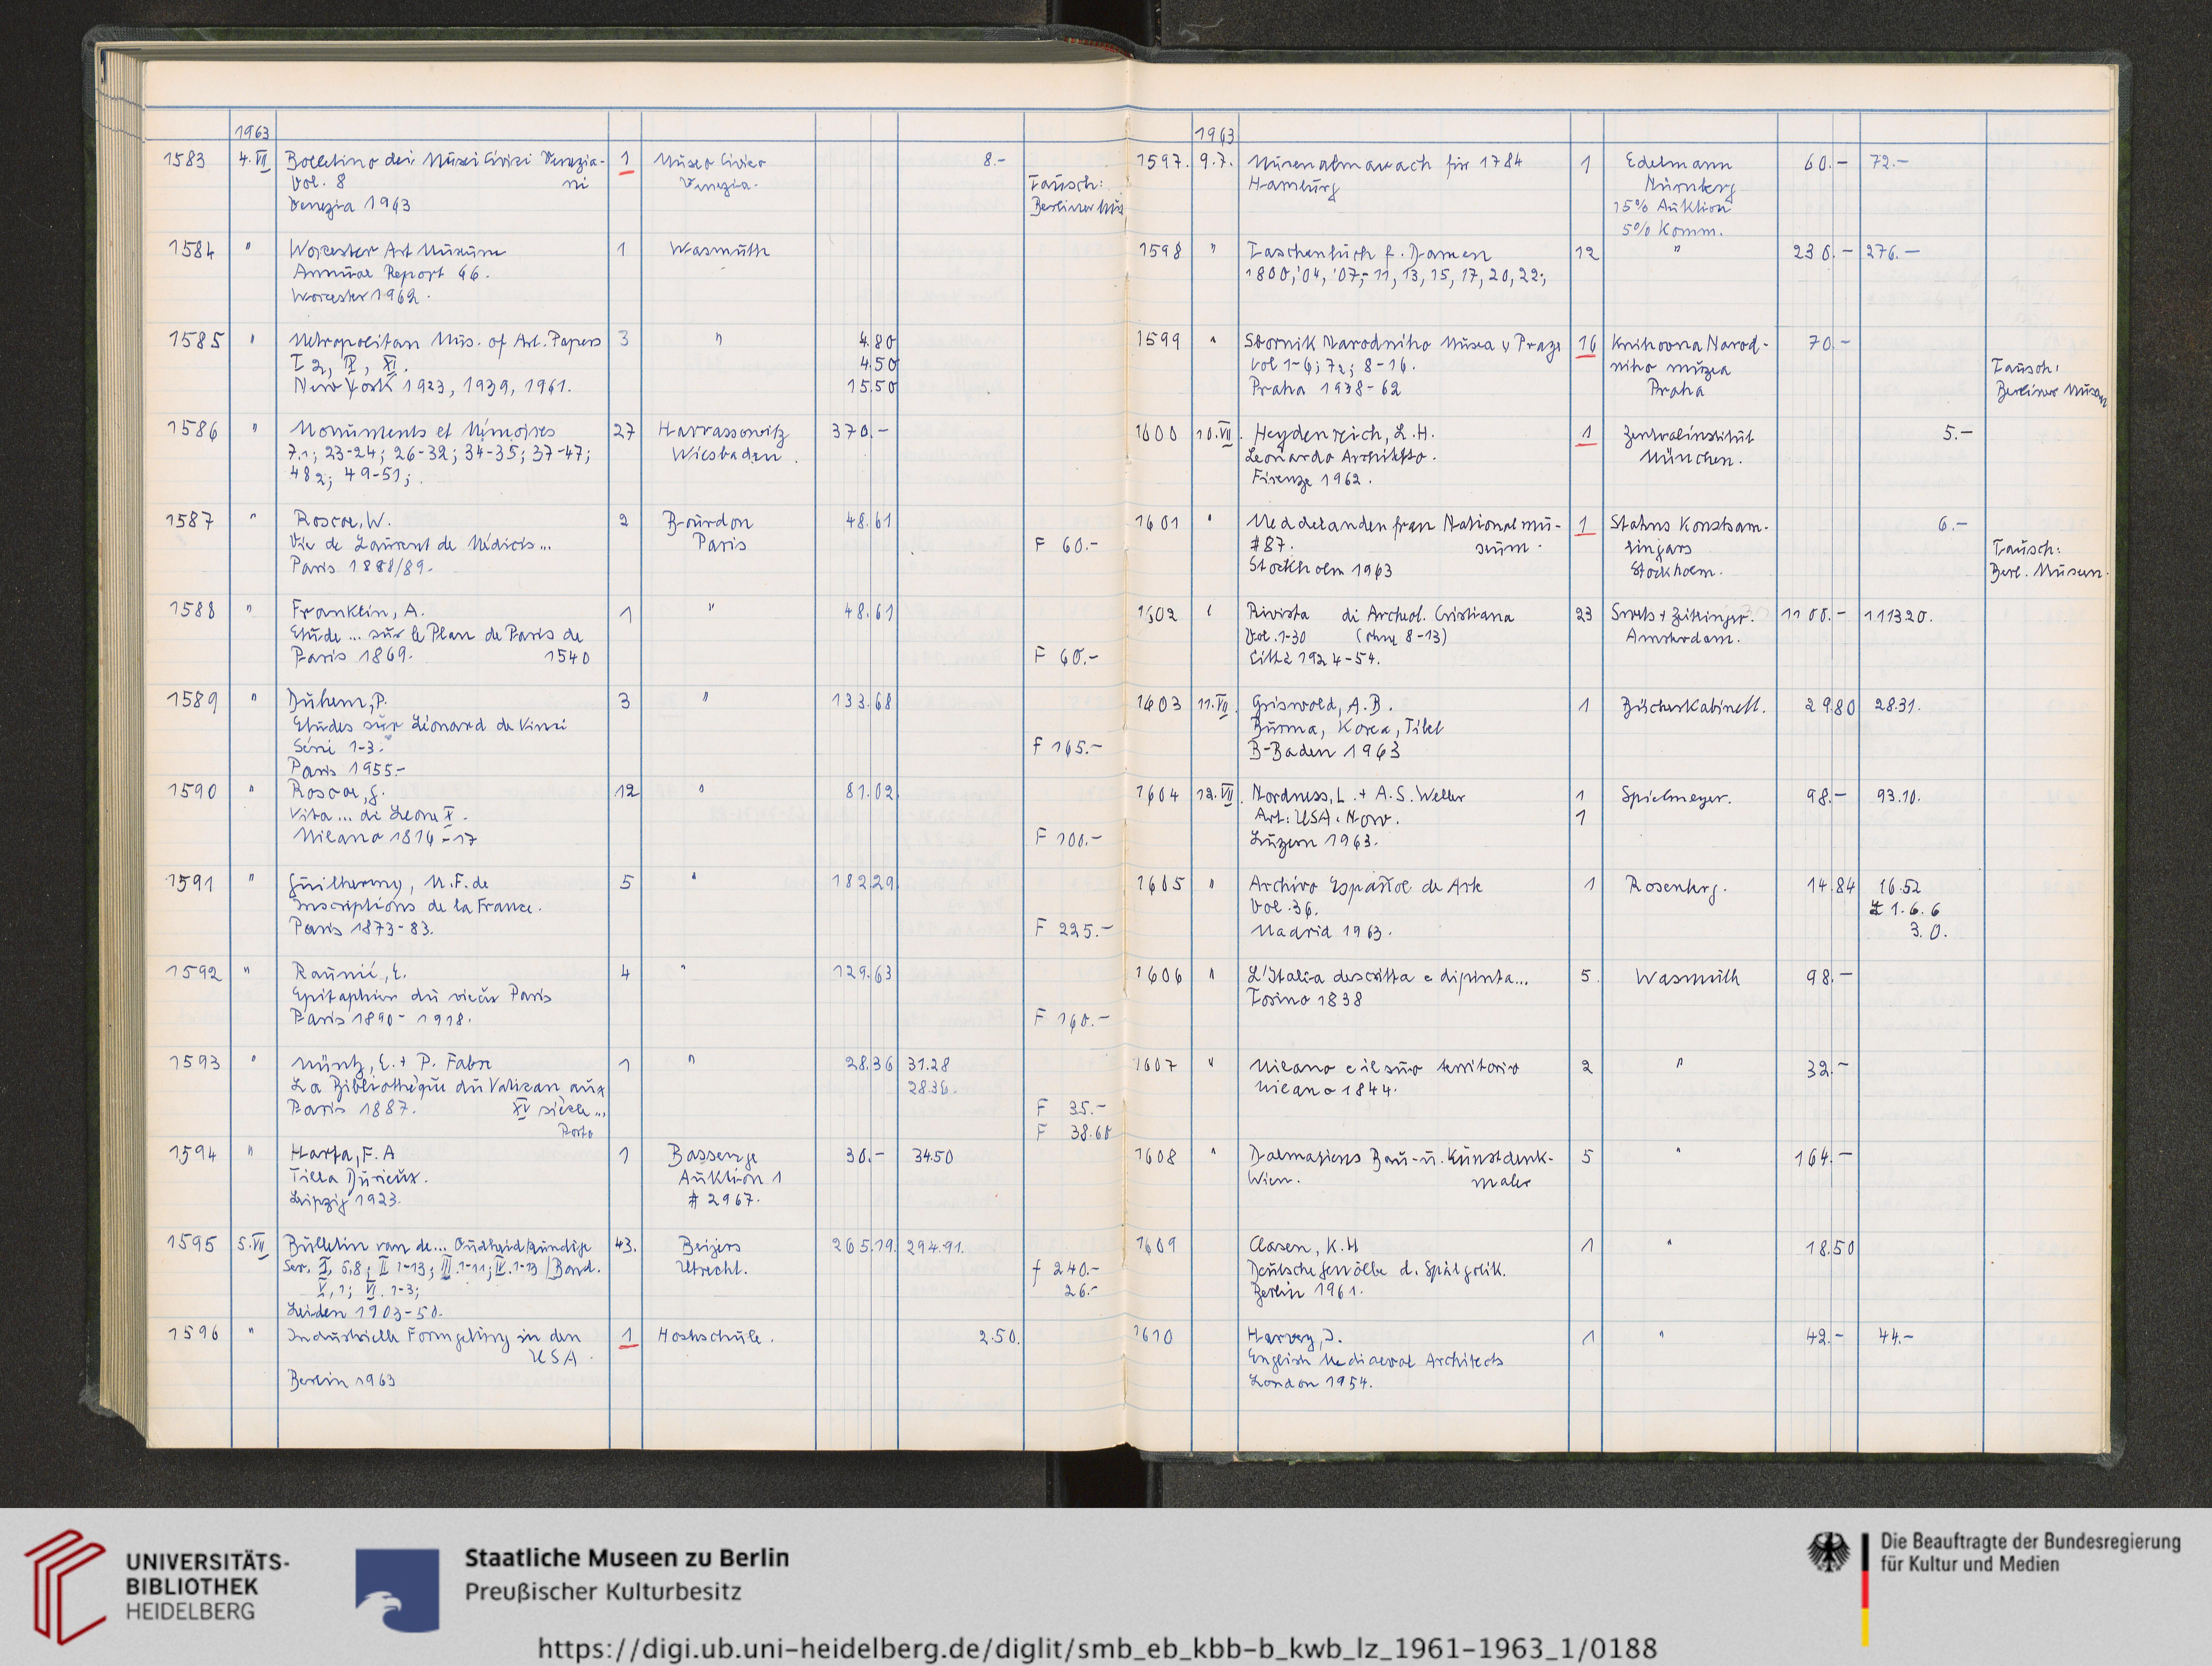 1963
1583 4.VII Bolletino dei Musei Civici Venezia- 1 Museo Civico 8.-
Vol. 8 ni Venezia. Tausch:
Venezia 1963 Berliner Mus
1584 " Worcester Art Museum 1 Wasmuth
Annual Report 66.
Worcester 1962.
1585 " Metropolitan Mus. of Art. Papers 3 " 4.80
I 2, IX, XI. 4.50
New York 1923, 1939, 1961. 15.50
1586 " Monuments et Mémoires 27 Harrassowitz 370.-
7.1; 23-24; 26-32; 34-35; 37-47; Wiesbaden.
48 2; 49-51;.
1587 " Roscoe, W. 2 Bourdon 48.61
Vie de Laurent de Médicis... Paris F 60.-
Paris 1888/89.
1588 " Franklin, A. 1 " 48.61
Etude ... sur le Plan de Paris de
Paris 1869. 1540 F 60.-
1589 " Duhem, P. 3 " 133.68
Etudes sur Léonard de Vinci
Série 1-3. F 165.-
Paris 1955.-
1590 " Roscoe, G. 12 " 81.02
Vita ... di Leone X.
Milano 1816-17 F 100.-
1591 " Guilhermy, M.F. de 5 " 182.29
Inscriptions de la France.
Paris 1873-83. F 225.-
1592 " Raunié, E. 4 " 129.63
Epitaphier du vieux Paris
Paris 1890-1918. F 160.-
1593 " Müntz, E. + P. Fabre 1 " 28.36 31.28
La Bibliothèque du Vatican aux 28.36.
Paris 1887. XV siècle... F 35.-
Porto F 38.60
1594 " Harta, F.A 1 Bassenge 30.- 34.50
Tilla Durieux. Auktion 1
Leipzig 1923. # 2967.
1595 5.VII Bulletin van de... Oudheidkundige 43. Beijers 265.19. 294.91.
Ser. I, 5.8; II 1-13; III.1-11; IV.1-13 Bond. Utrecht. f 240.-
V, 1; VI. 1-3; 26.-
Leiden 1903-50.
1596 " Industrielle Formgebung in den 1 Hochschule. 2.50.
USA.
Berlin 1963
1963
1597. 9.7. Musenalmanach für 1784 1 Edelmann 60.- 72.-
Hamburg Nürnberg
15% Auktion
5% Komm.
1598 " Taschenbuch f. Damen 12 " 230.- 276.-
1800, '04, '07,- 11, 13, 15, 17, 20, 22;
1599 " Sbornik Narodniho Musea v Praze 16 Knihovna Narod- 70.-
vol 1-6; 7 2; 8-16. niho muzea Tausch:
Praha 1938-62 Praha Berliner Museen
1600 10.VII. Heydenreich, L.H. 1 Zentralinstitut 5.-
Leonardo Architetto. München.
Firenze 1962.
1601 " Meddelanden fran Nationalmu- 1 Statens Konstsam- 6.-
#87. seum. lingars Tausch:
Stockholm 1963 Stockholm. Berl. Museen.
1602 " Rivista di Archeol. Cristiana 23 Swets + Zeitlinger. 1100.- 1113 20.
Vol. 1-30 (ohne 8-13) Amsterdam.
Città 1924-54.
1603 11.VII. Griswold, A.B. 1 Bücherkabinett. 29.80 28.31.
Burma, Korea, Tibet
B-Baden 1963
1604 12.VII. Nordness, L. + A.S. Weller 1 Spielmeyer. 98.- 93.10.
Art: USA: Now. 1
Luzern 1963.
1605 " Archivo Español de Arte 1 Rosenberg. 14.84 16.52
Vol. 36. £ 1.6.6
Madrid 1963. 3.0.
1606 " L'Italia descritta e dipinta... 5. Wasmuth 98.-
Torino 1838
1607 " Milano e il suo territorio 2 " 32.-
Milano 1844.
1608 " Dalmatiens Bau- u. Kunstdenk- 5 " 164.-
Wien. maler
1609 Clasen, K.H 1 " 18.50
Deutsche Gewölbe d. Spätgotik.
Berlin 1961.
1610 Harvey, J. 1 " 42.- 44.-
English Mediaeval Architects
London 1954.
UNIVERSITÄTS-
BIBLIOTHEK
HEIDELBERG
Staatliche Museen zu Berlin
Preußischer Kulturbesitz
Die Beauftragte der Bundesregierung
für Kultur und Medien
https://digi.ub.uni-heidelberg.de/diglit/smb_eb_kbb-b_kwb_lz_1961-1963_1/0188